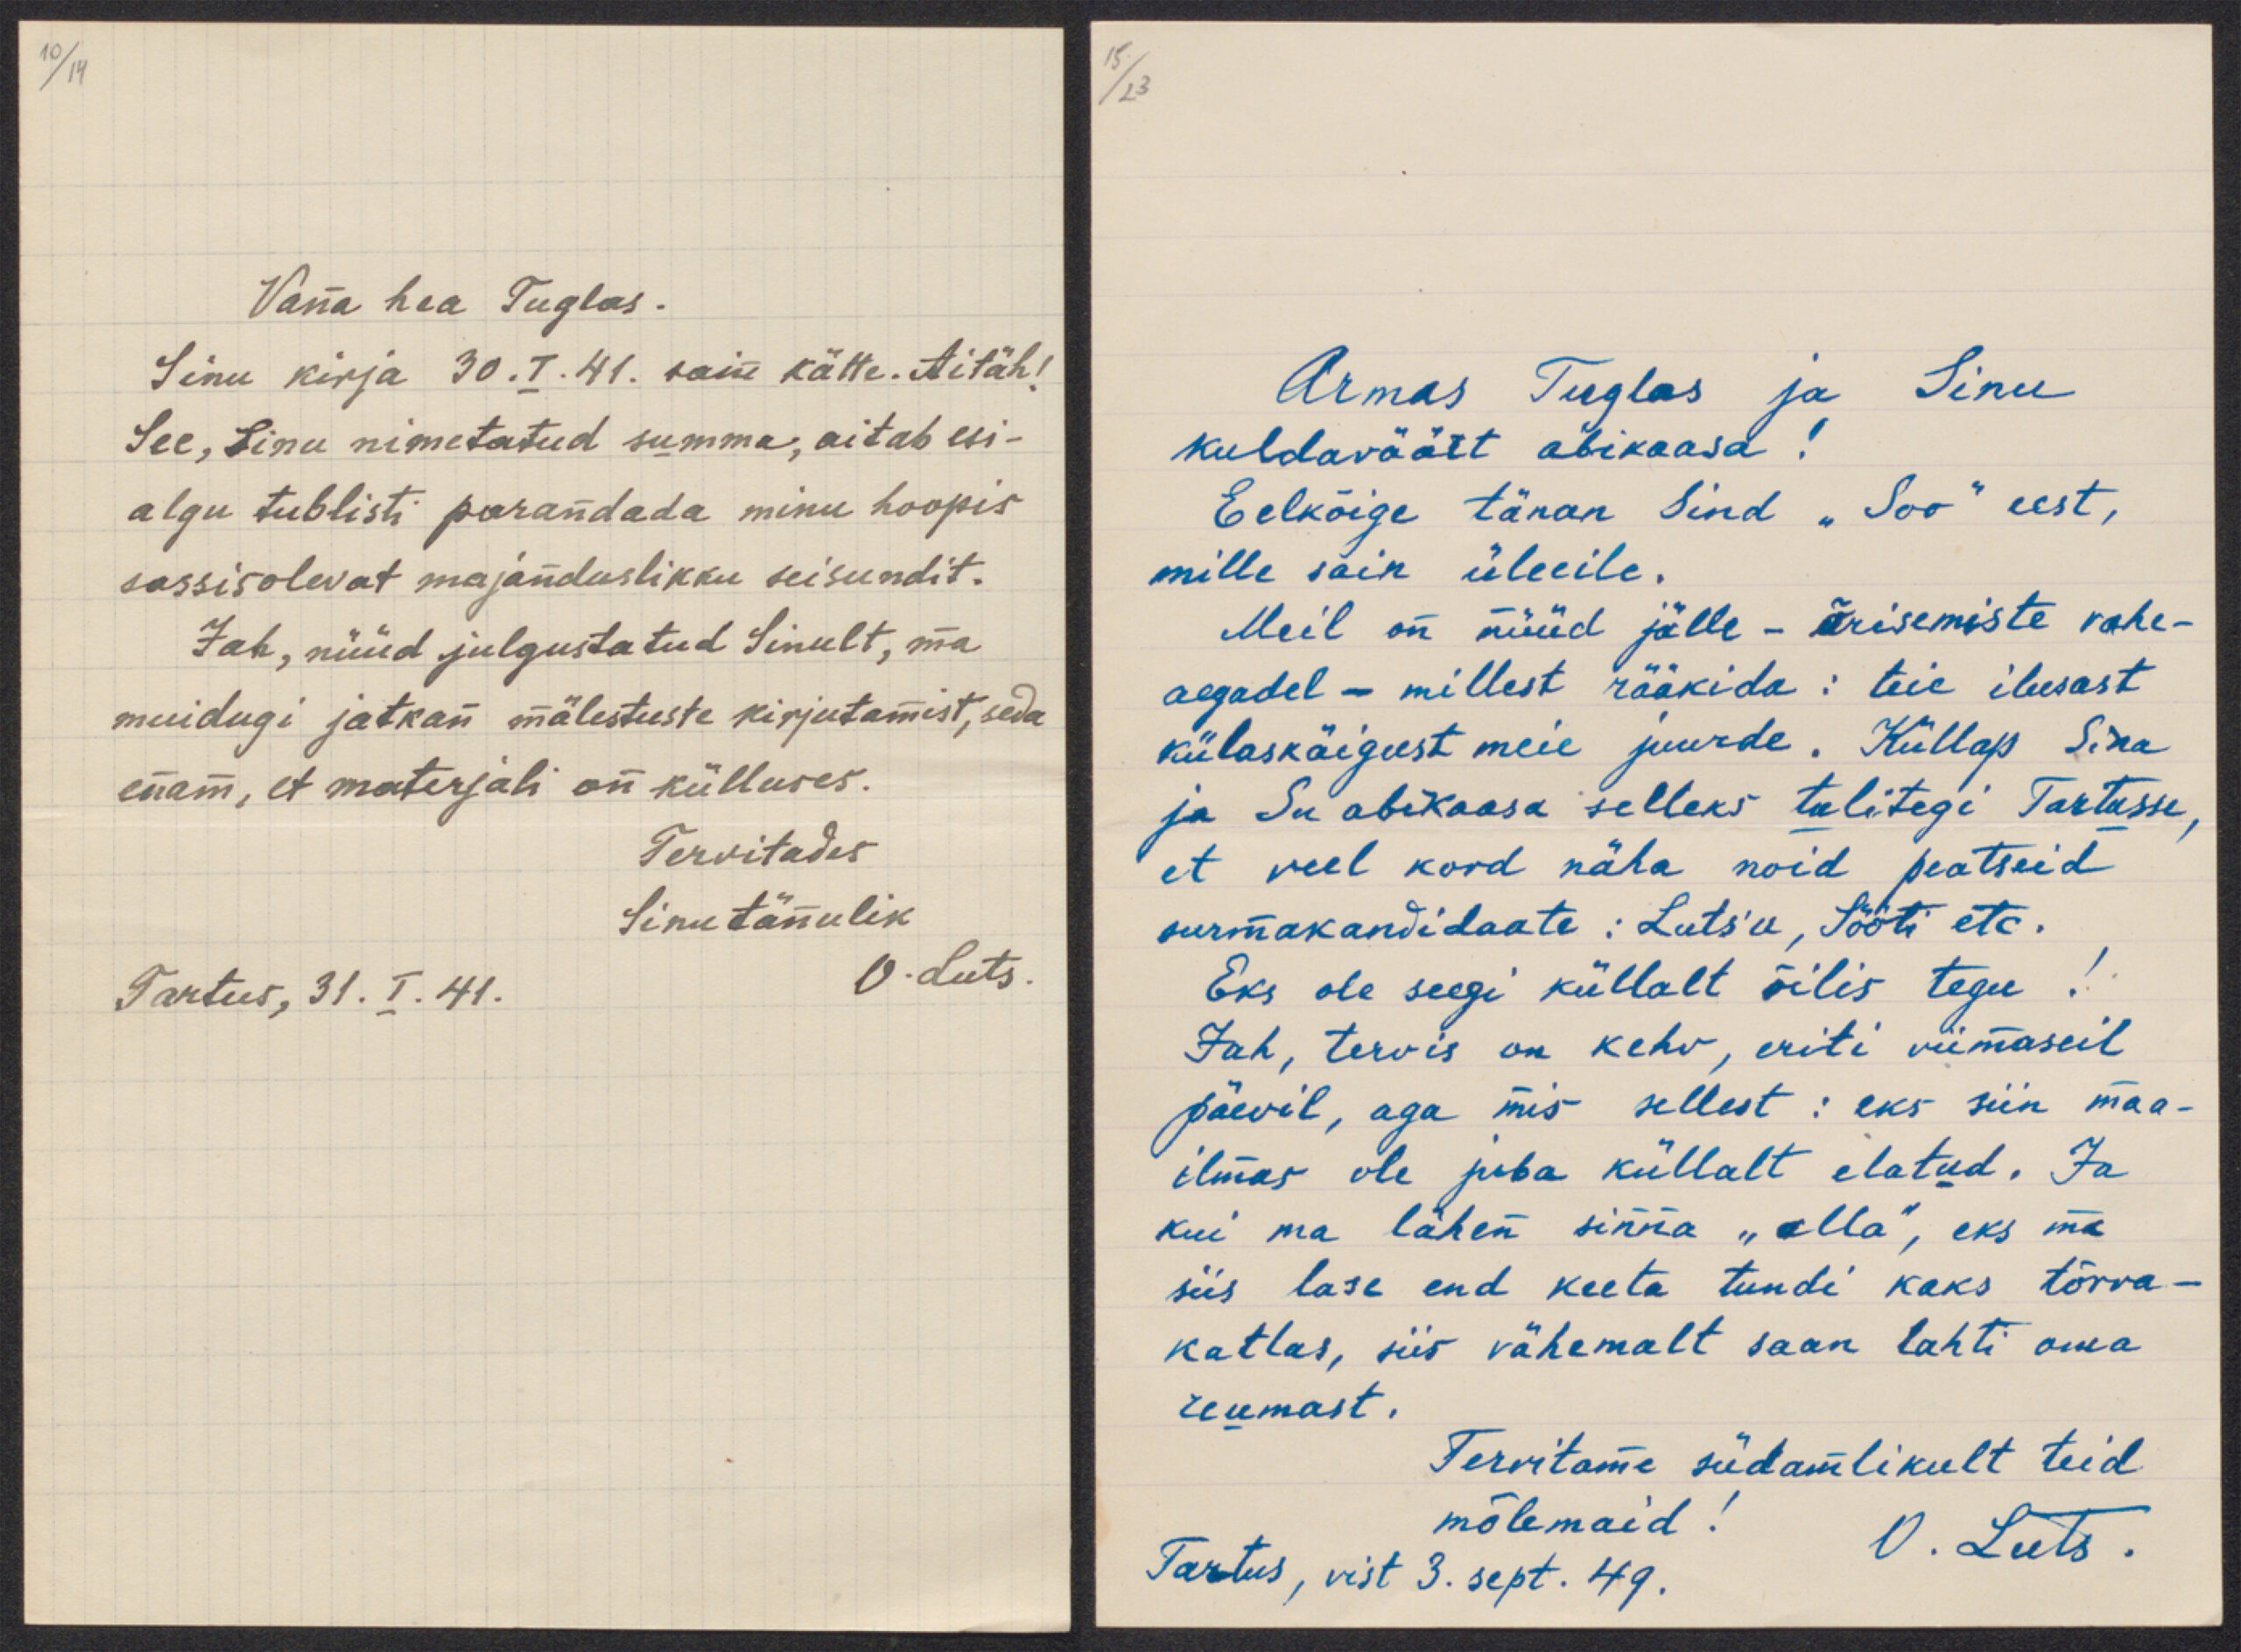 10/14
Vana hea Tuglas.
Sinu kirja 30. I. 41. sain kätte. Aitäh!
See, Sinu nimetatud summa, aitab esi-
algu tublisti parandada minu hoopis
sassisolevat majanduslikku seisundit.
Jah, nüüd julgustatud Sinult, ma
muidugi jatkan mälestuste kirjutamist, seda
enam, et materjali on külluses.
Tervitades
Sinu tänulik
O. Luts.
Tartus, 31. I. 41.
15/23
Armas Tuglas ja Sinu
kuldaväärt abikaasa!
Eelkõige tänan Sind „Soo" eest,
mille sain üleeile.
Meil on nüüd jälle - ärisemiste vahe-
aegadel - millest rääkida: teie ilusast
külaskäigust meie juurde. Küllap Sina
ja Su abikaasa selleks tulitegi Tartusse,
et veel kord näha noid peatseid
surmakandidaate: Luts'u, Sööti etc.
Eks ole seegi küllalt õilis tegu!
Jah, tervis on kehv, eriti viimaseil
päevil, aga mis sellest: eks siin maa-
ilmas ole juba küllalt elatud. Ja
kui ma lähen sinna „alla", eks ma
siis lase end keeta tundi kaks tõrva-
katlas, siis vähemalt saan lahti oma
reumast.
Tervitame südamlikult teid
mõlemaid!
O. Luts.
Tartus, vist 3. sept. 49.